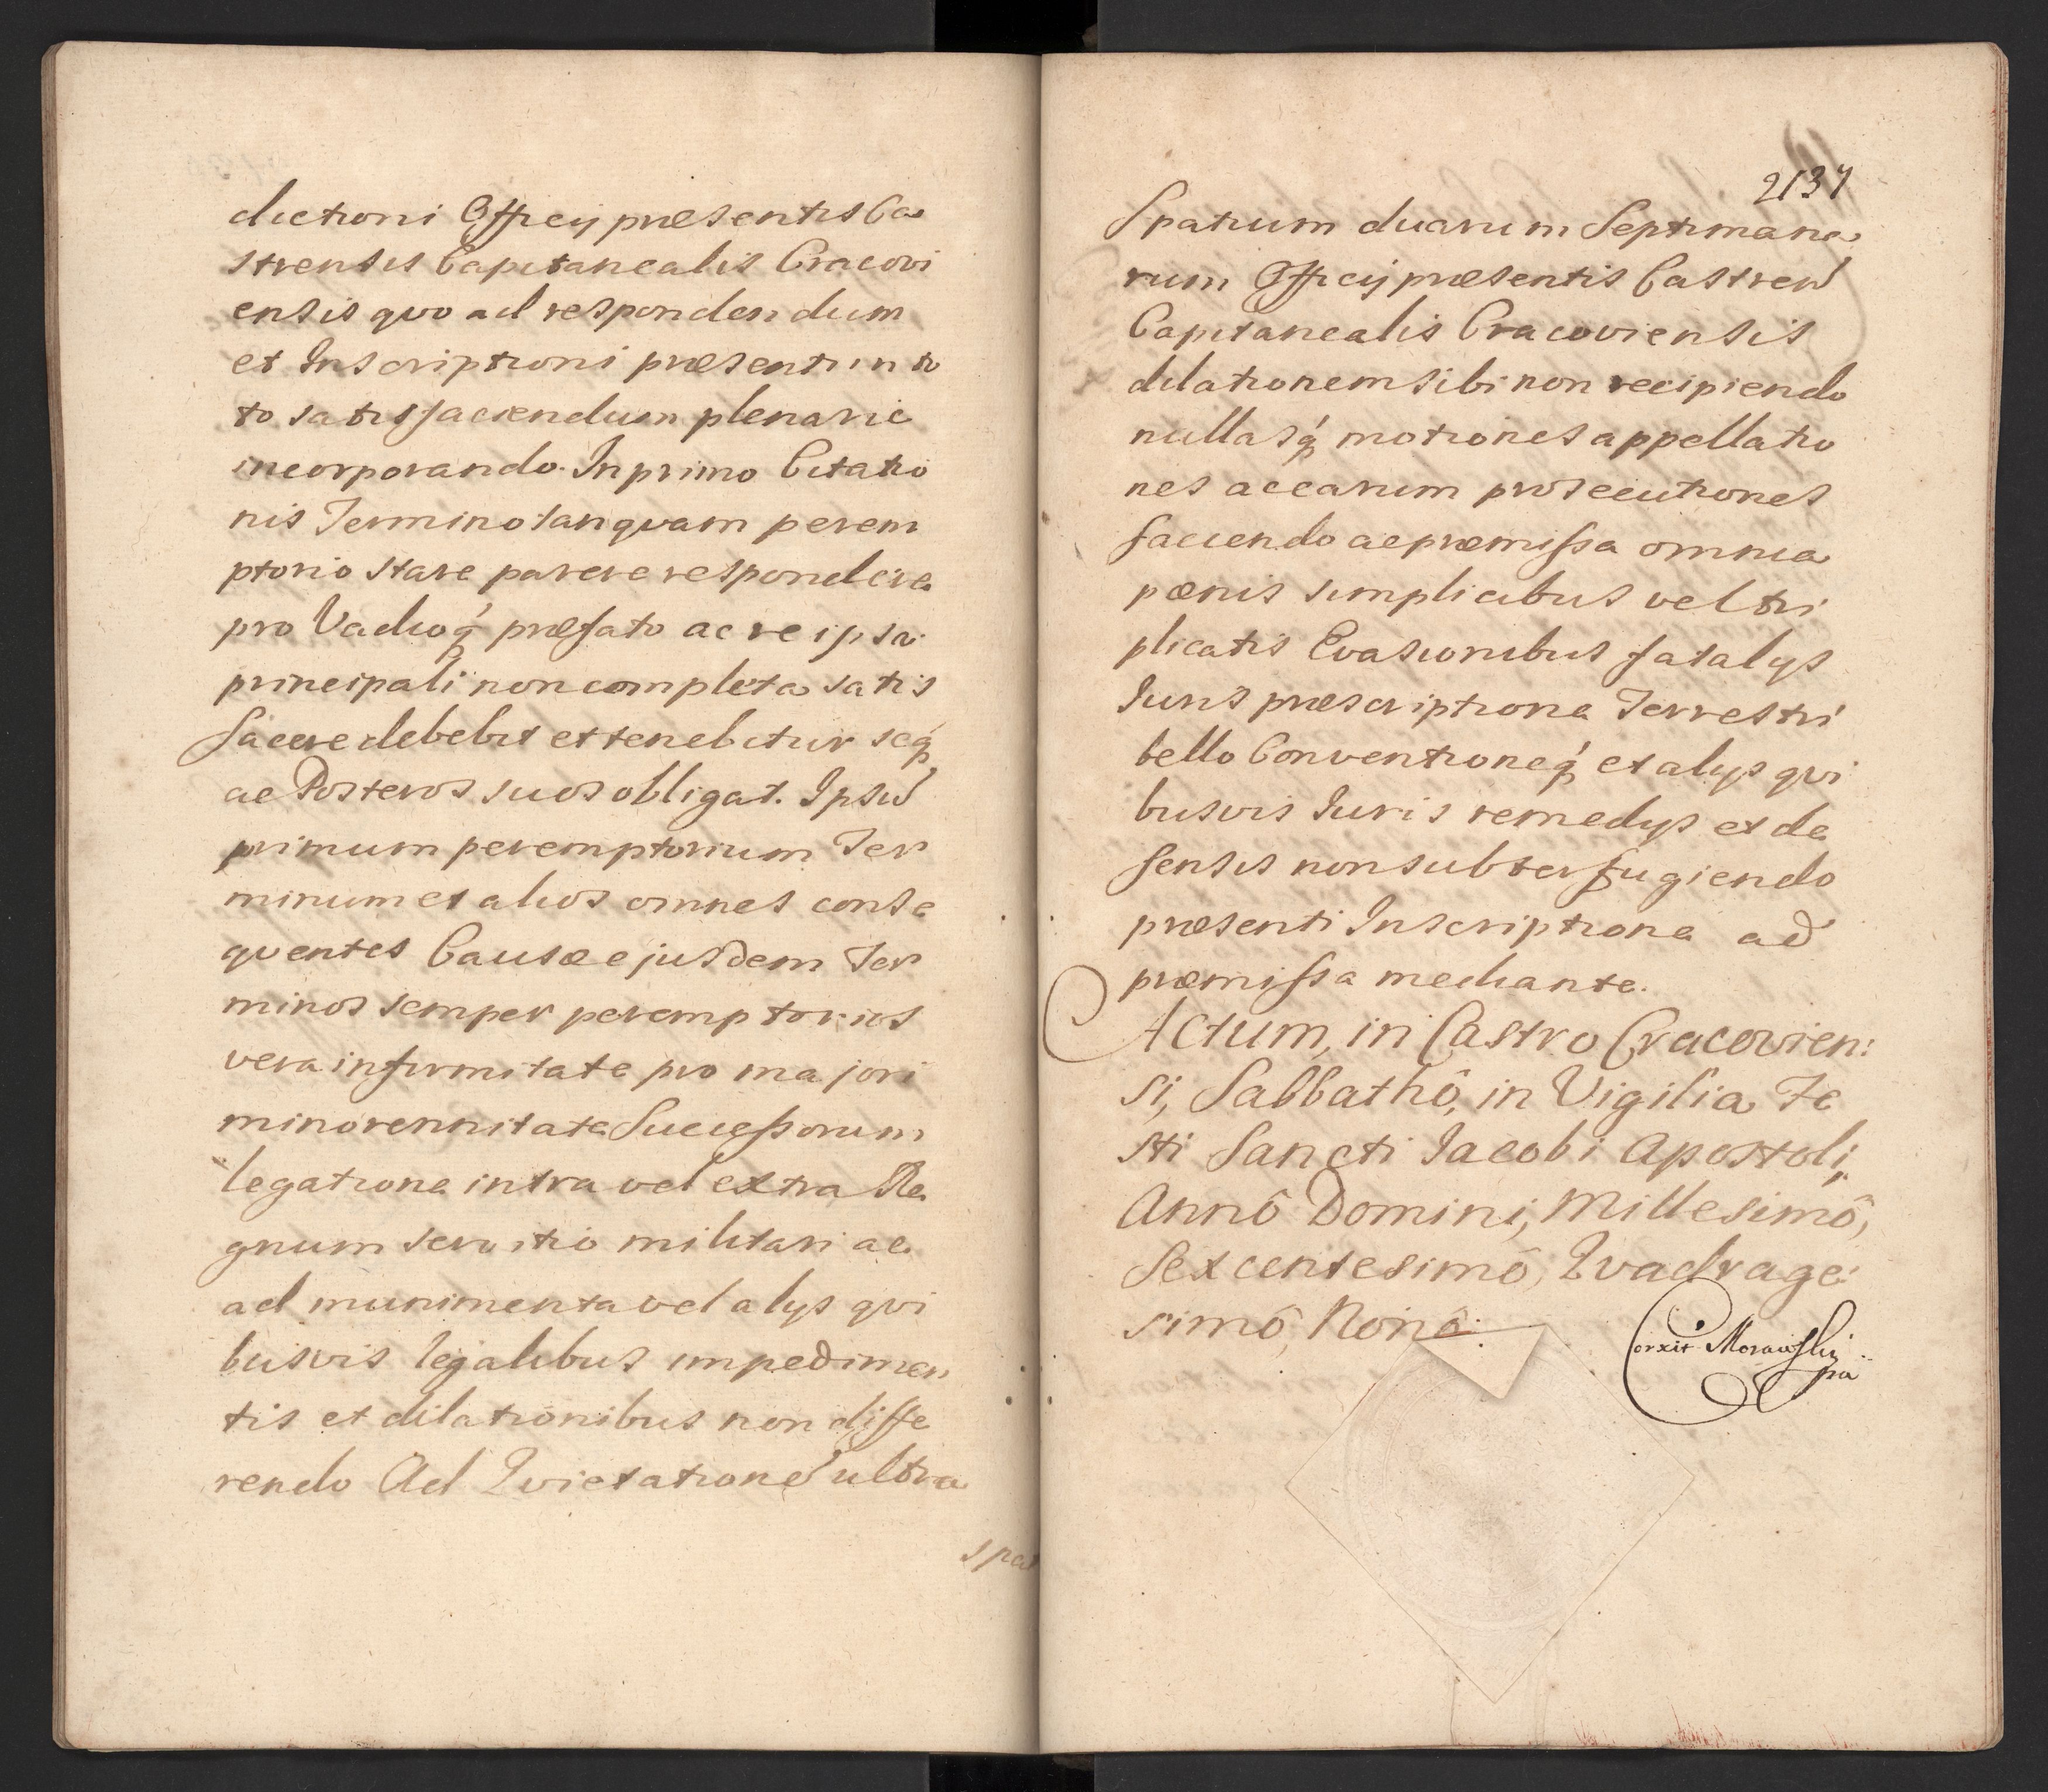 dictioni Officij præsentis Ca
strensis Capitanealis Cracovi
ensis quo ad respondendum
et Inscriptioni præsenti in to
to satisfaciendum plenarie
incorporando. In primo Citatio
nis Termino tanquam perem
ptorio stare parere respondere
pro Vadioq́ præfato ac re ipsa
principali non completa satis
facere debebit et tenebitur seq́
ac Posteros suos obligat. Ipsū
primum peremptorium Ter
minum et alios omnes conse
quentes Causæ ejusdem Ter
minos semper peremptorios
vera infirmitate pro majori
minorennitate Successorum
legatione intra vel extra Re
gnum servitio militari ac
ad munimenta vel alys qvi
busvis legalibus impedimen
tis et dilationibus non diffe
rendo Ad Qvietationē ultra
spa
2137
Spatium duarum Septimana
rum Officij præsentis Castren̄
Capitanealis Cracoviensis
dilationem sibi non recipiendo
nullasq́ motiones appellatio
nes ac earum prosecutiones
faciendo ac præmissa omnia
pænis simplicibus vel tri
plicatis Evasionibus fatalys
Iuris præscriptione Terrestri
bello Conventioneq́ et alys qvi
busvis Iuris remedys et de
fensis non subterfugiendo
præsenti Inscriptione ad
præmissa mediante.
Actum, in Castro Cracovien:
si, Sabbathô, in Vigilia Fe
sti Sancti Iacobi Apostoli,
Annô Domini, Millesimô,
Sexcentesimô, Qvadrage:
simô, Nonô:
Corxit Morawski
mp